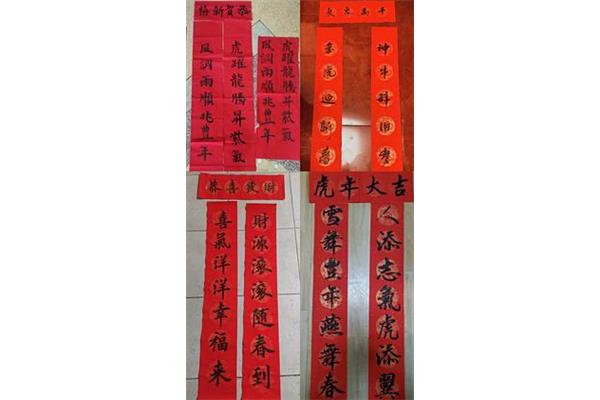 恭賀新禧
虎躍龍騰昇紫氣
風調雨順兆豐年
虎躍龍騰昇紫氣
風調雨順兆豐年
神牛辞旧歲
虎迎新春
恭喜發財
財源滾滾隨春到
喜氣洋洋幸福来
虎年大吉
人添志氣虎添翼
雪舞豐年燕舞春